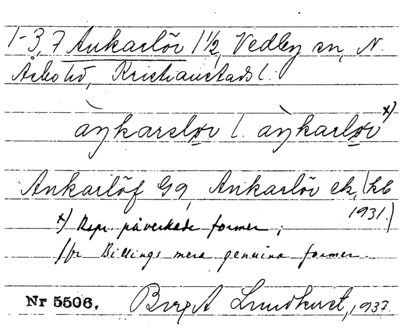 1-3, 7 Ankarlöv 1 1/2, Vedby sn, N.
Åsbo hd, Kristianstads l.
àŋkarsløv l. àŋkarløv x)
Ankarlöf Gg, Ankarlöv ek, (hb
1931.)
x) Repr. påverkade former;
jfr Billings mera genuina former.
Nr 5506. Birg A Lundkvist, 1937.